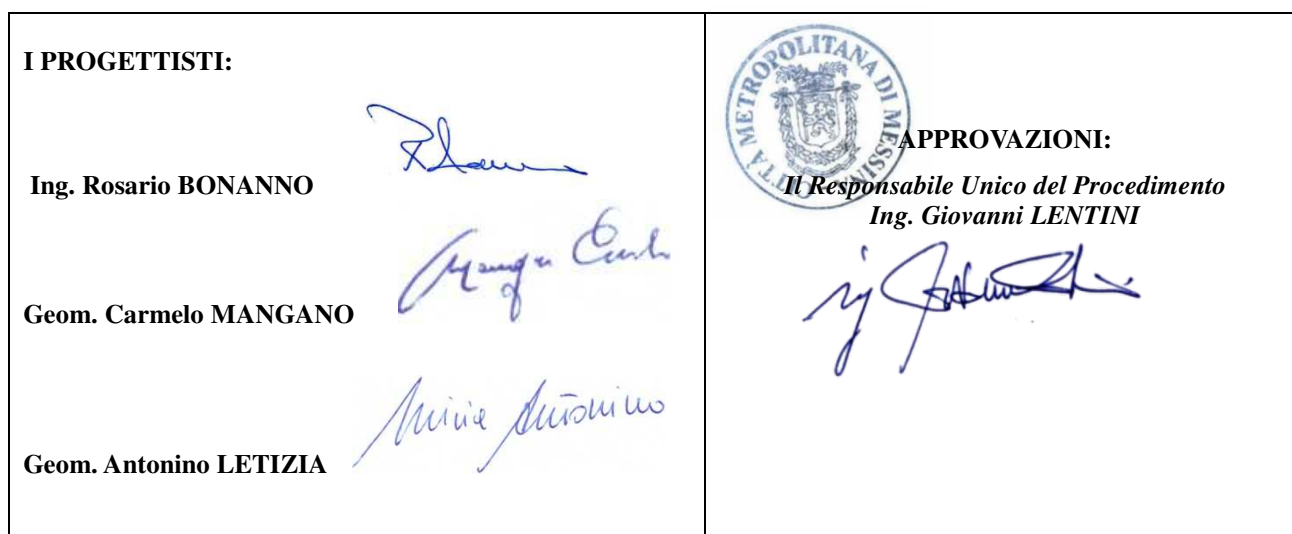 I PROGETTISTI:
Ing. Rosario BONANNO
Geom. Carmelo MANGANO
Geom. Antonino LETIZIA
Antonino
CITTÀ METROPOLITANA DI MESSINA
APPROVAZIONI:
Il Responsabile Unico del Procedimento
Ing. Giovanni LENTINI